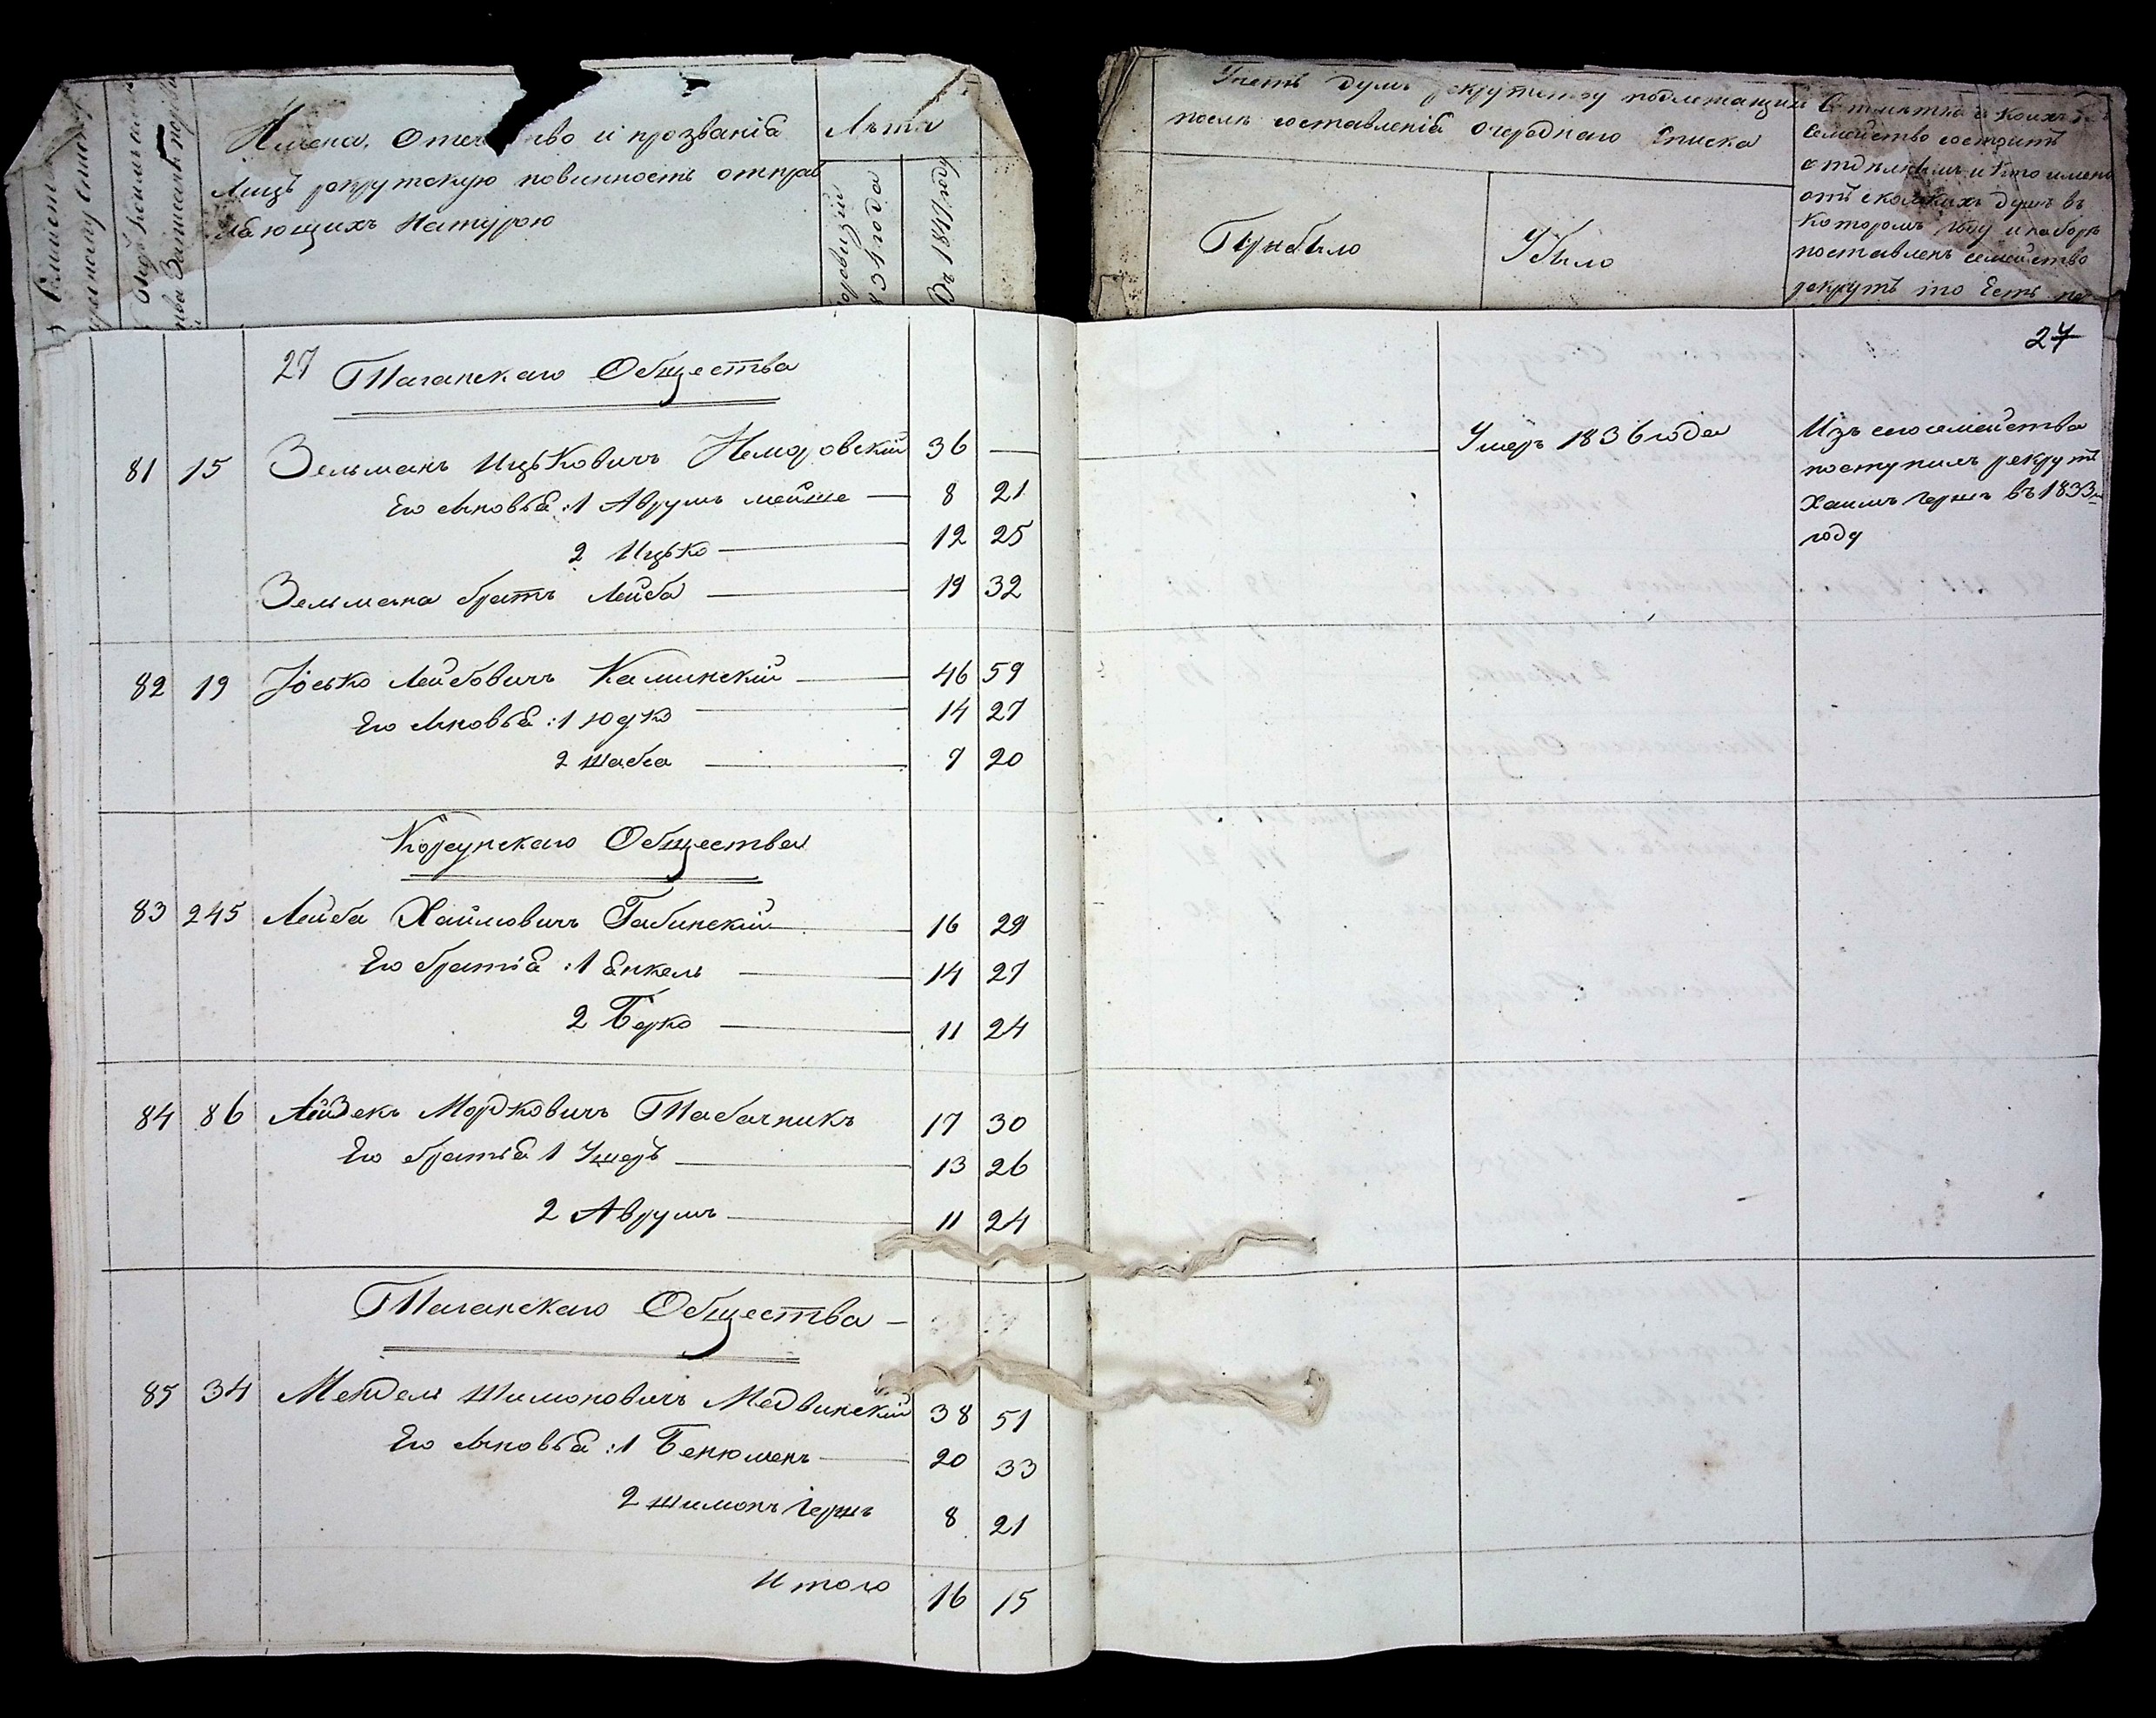 Имена, Отечество и прозванія
Лицъ рекрутскую повинность отправ
ляющихъ Натурою
Лѣта
По ревизіи
1834 года
Въ 1847 году
Учетъ душъ рекрутству подлежащимъ
послѣ составленія очереднаго Списка
Прибыло
Убыло
Семейство состоитъ
котором году и наборѣ
поставленъ семейство
рекрутъ то Есть
27
27 Таганскаго Общества
81 15 Зельманъ Ицьковичъ Немировскій 36 —
Умеръ 1836 года
Изъ сего семейства
поступилъ рекрутъ
Хаимъ Герш въ 1833м
году
Его сыновья: 1 Аврумъ мейше — 8 21
2 Ицько — 12 25
Зельмана братъ Лейба — 19 32
82 19 Іосько Лейбовичъ Каминскій — 46 59
Его сыновья: 1 Юдко — 14 27
2 шабса — 7 20
Корсунскаго Общества
83 245 Лейба Хаймовичъ Габинскій — 16 29
Его братія: 1 Янкель — 14 27
2 Берко — 11 24
84 86 Айзекъ Мордковичъ Табачникъ 17 30
Его братія 1 Ушеръ — 13 26
2 Аврумъ — 11 24
Таганскаго Общества —
85 34 Мендель Шимоновичъ Медвинскій 38 51
Его сыновья: 1 Бенюменъ — 20 33
2 шимонъ Гершъ 8 21
Итого 16 15